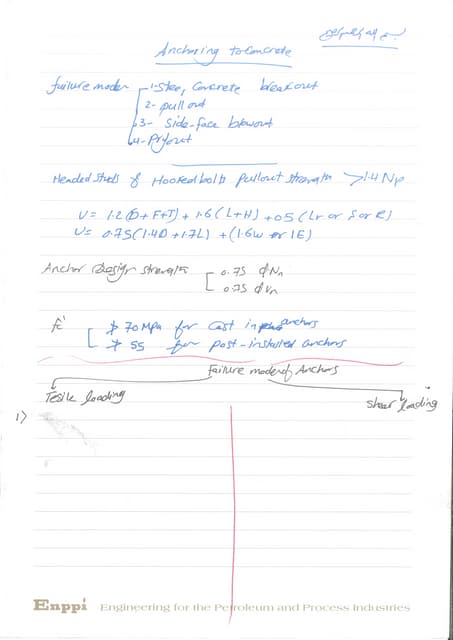 بسم الله الرحمن الرحيم
Anchoring to Concrete
failure modes 1- Steel, Concrete breakout
2- pull out
3- Side-face blowout
4- Pryout
Headed Studs & Hooked bolts pullout strength > 1.4 Np
U = 1.2(D+F+T) + 1.6(L+H) + 05 (Lr or S or R)
U = 0.75(1.4D + 1.7L) + (1.6w or 1E)
Anchor Design strength 0.75 φNn
0.75 φVn
fc' ≯ 70 MPa for Cast in place anchors
≯ 55 for post-installed anchors
Failure mode of Anchors
Tesile loading
Shear loading
1)
Enppi Engineering for the Petroleum and Process Industries